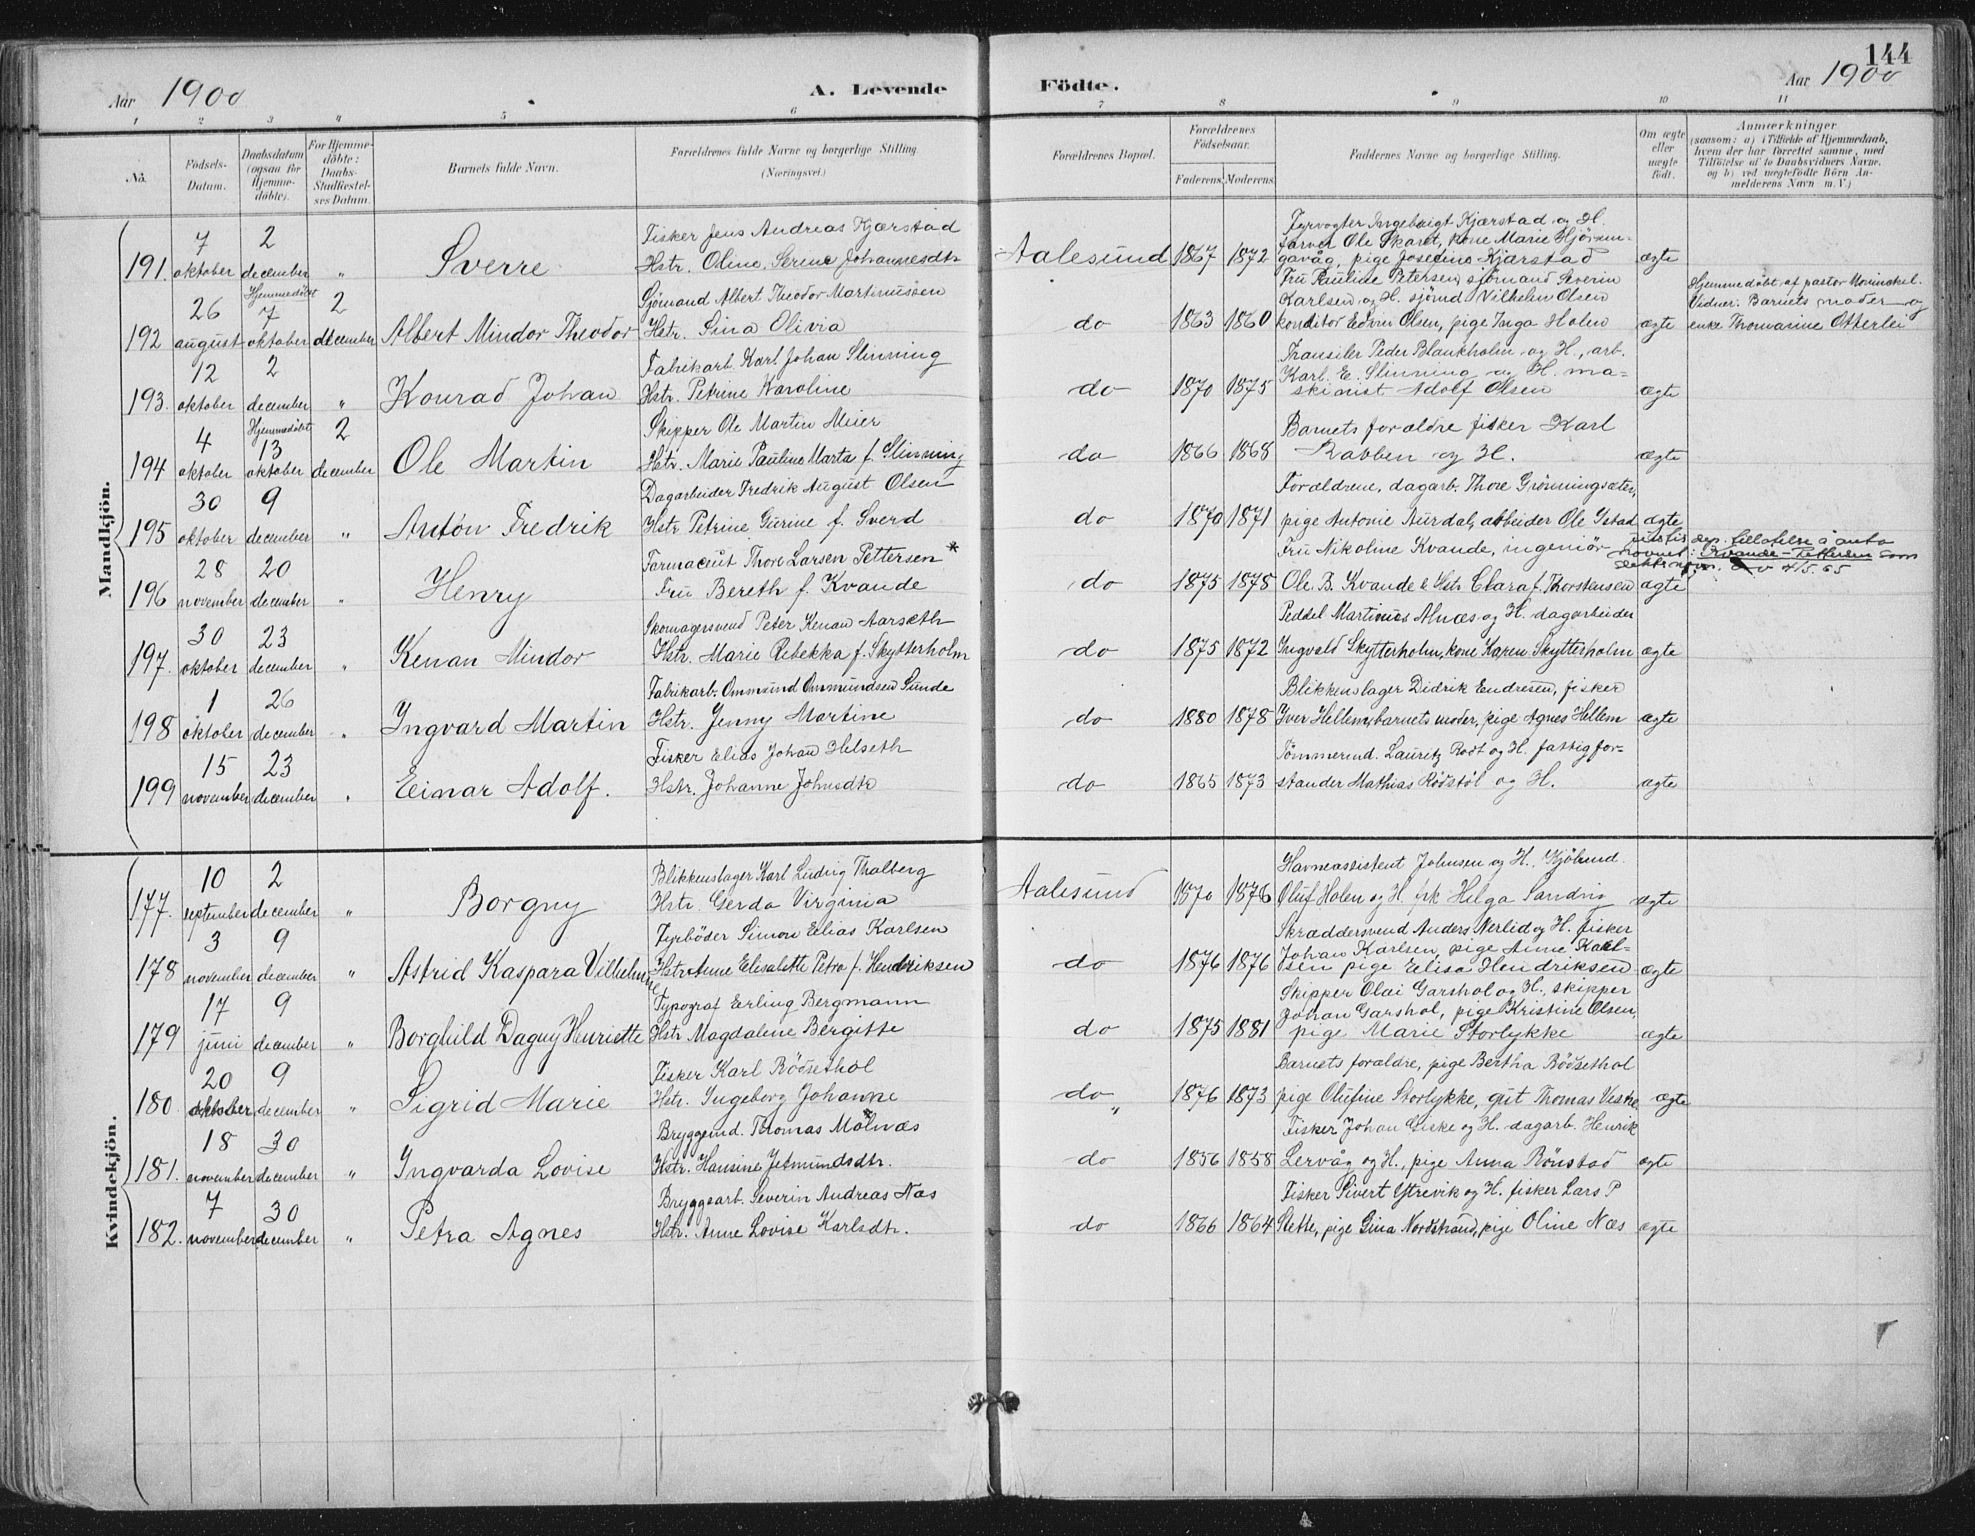 144
Aar 1900 A. Levende Födte. Aar 1900
1 2 3 4 5 6 7 8 9 10 11
No. Födsels-Datum. Daabsdatum (ogsaa for Hjemmedöbte). For Hjemmedöbte: Daabs-Stadfæstelses Datum. Barnets fulde Navn. Forældrenes fulde Navne og borgerlige Stilling (Næringsvei.) Forældrenes Bopæl. Forældrenes Födselsaar. Faderens. Moderens. Faddernes Navne og borgerlige Stilling. Om ægte eller uægte födt. Anmærkninger (saasom: a) i Tilfælde af Hjemmedaab, hvem der har forrettet samme, med Tilföielse af to Daabsvidners Navne, og b) ved uægtefödte Börn Anmelderens Navn m. V.)
Mandkjön.
191. 7 oktober 2 december " Sverre Fisker Jens Andreas Kjærstad
Hstr. Oline Serine Johannesdtr Aalesund 1867 1872 Fyrvogter Ingebrigt Kjærstad og H.
farver Ole Skaret, kone Marie Hjörungavåg, pige Josefine Kjærstad ægte
192 26 august Hjemmedöbt 7 oktober 2 december Albert Mindor Theodor Sjömand Albert Theodor Martinussen
Hstr. Sina Olivia do 1863 1860 Fru Pauline Petersen sjömand Severin
Karlsen og H. sjömd Vilhelm Olsen
konditor Edvin Olsen, pige Inga Holm ægte Hjemmedöbt af pastor Movinckel.
Vidner: Barnets moder og
enke Thomasine Otterlei
193. 12 oktober 2 december " Konrad Johan Fabrikarb. Karl Johan Slinning
Hstr. Petrine Karoline do 1870 1875 Transiler Peder Blankholm og H., arb.
Karl E. Slinning og H. maskinist Adolf Olsen ægte
194 4 oktober Hjemmedöbt 13 oktober 2 december Ole Martin Skipper Ole Martin Meier
Hstr. Marie Pauline Marta f. Slinning do 1866 1868 Barnets forældre fisker Karl
Rabben og H. ægte
195 30 oktober 9 december " Anton Fredrik Dagarbeider Fredrik August Olsen
Hstr Petrine Gurine f. Sverd do 1870 1871 Forældrene, dagarb. Thore Grönningsæter,
pige Antonie Aurdal, arbeider Ole Ystad ægte
196 28 november 20 december " Henry Farmaceut Thore Larsen Pettersen*
Fru Bereth f. Kvande do 1875 1878 Fru Nikoline Kvande, ingeniör
Ole B. Kvande & Hstr Clara f. Thorstensen ægte justis dep. tillatelse å anta
navnet: Kvande-Pettersen som
slektsnavn. 4/5.65
197. 30 oktober 23 december " Kenan Mindor Skomagersvend Peter Kenan Aarseth
Hstr. Marie Rebekka f. Skytterholm do 1875 1872 Peddel Martinus Alnæs og H. dagarbeider
Ingvald Skytterholm, kone Karen Skytterholm ægte
198 1 oktober 26 december " Ingvard Martin Fabrikarb. Ommund Ommundsen Sunde
Hstr. Jenny Martine do 1880 1878 Blikkenslager Didrik Endresen, fisker
Iver Hellem, barnets moder, pige Agnes Hellem ægte
199 15 november 23 december " Einar Adolf. Fisker Elias Johan Helseth
Hstr. Johanne Johnsdtr do 1865 1873 Tömmermd. Lauritz Rodt og H. fattigforstander Mathias Rödstöl og H. ægte
Kvindekjön.
177. 10 september 2 december " Borgny Blikkenslager Karl Ludvig Thalberg
Hstr. Gerda Virginia Aalesund 1870 1876 Havneassistent Johnsen og H. Kjöbmd.
Oluf Holen og H. frk Helga Sandvig ægte
178 3 november 9 december " Astrid Kaspara Vilhelmine Fyrböder Simon Elias Karlsen
Hstr Anne Elisabette Petra f. Hendriksen do 1876 1876 Skræddersvend Anders Nerlid og H. fisker
Johan Karlsen, pige Anne Karlsen pige Elisa Hendriksen ægte
179 17 juni 9 december " Borghild Dagny Henriette Typograf Erling Bergmann
Hstr Magdalene Bergitte do 1875 1881 Skipper Olai Garshol og H., skipper
Johan Garshol, pige Kristine Olsen,
pige Marie Storlykke ægte
180 20 oktober 9 december " Sigrid Marie Fisker Karl Rödsethol
Hstr. Ingeborg Johanne do " 1876 1873 Barnets forældre, pige Bertha Rödsethol
pige Olufine Storlykke, gut Thomas Vestre ægte
181. 18 november 30 december " Ingvarda Lovise Bryggemd. Thomas Molnæs
Hstr. Hansine Jetmundsdtr. do 1856 1858 Fisker Johan Giske og H. dagarb. Henrik
Lervåg og H., pige Anna Rönstad ægte
182. 7 november 30 december " Petra Agnes Bryggearb. Severin Andreas Næs
Hstr. Anne Lovise Karlsdtr. do 1866 1864 Fisker Sivert Ytrevik og H. fisker Lars P
Slette, pige Gina Nordstrand, pige Oline Næs ægte